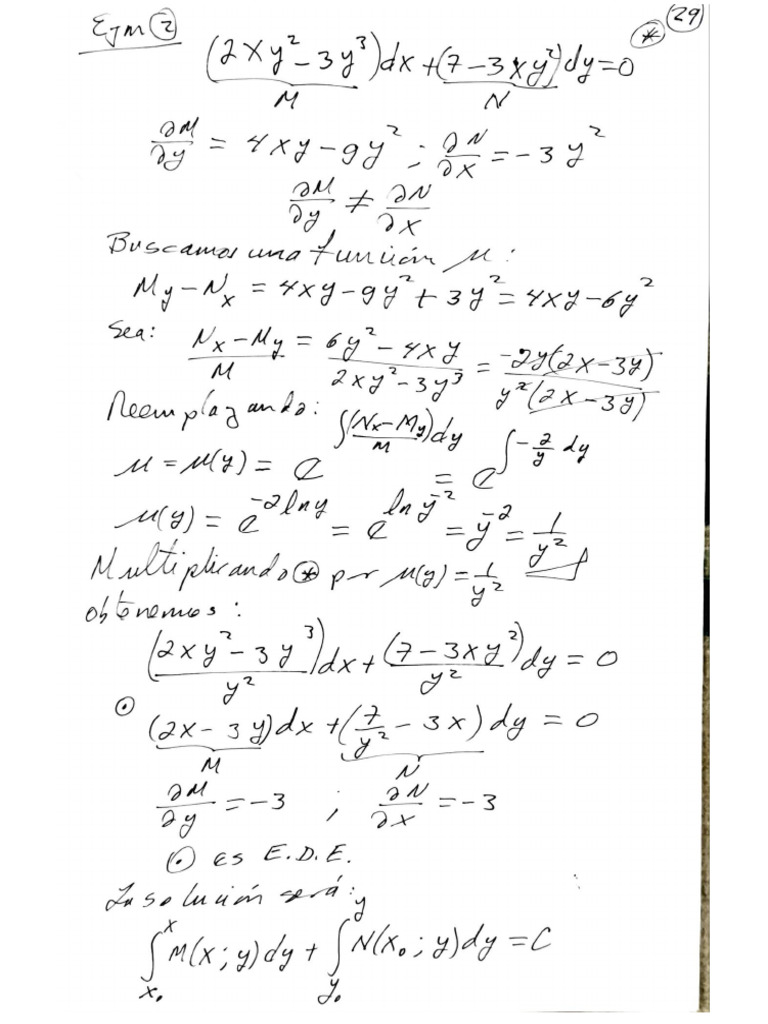 Ejm ② (29)
(2xy² - 3y³)dx + (7 - 3xy²)dy = 0 ⊛
M N
∂M/∂y = 4xy - 9y² ; ∂N/∂x = -3y²
∂M/∂y ≠ ∂N/∂x
Buscamos una función μ:
My - Nx = 4xy - 9y² + 3y² = 4xy - 6y²
Sea: (Nx - My)/M = (6y² - 4xy)/(2xy² - 3y³) = -2y(2x - 3y)/y²(2x - 3y)
Reemplazando:
μ = μ(y) = e^∫((Nx - My)/M)dy = e^∫-2/y dy
μ(y) = e^-2lny = e^ln y⁻² = y⁻² = 1/y²
Multiplicando ⊛ por μ(y) = 1/y²
obtenemos:
(2xy² - 3y³)/y² dx + (7 - 3xy²)/y² dy = 0
⊙ (2x - 3y)dx + (7/y² - 3x)dy = 0
M N
∂M/∂y = -3 ; ∂N/∂x = -3
⊙ es E.D.E.
La solución será:
∫x₀^x M(x;y)dy + ∫y₀^y N(x₀;y)dy = C